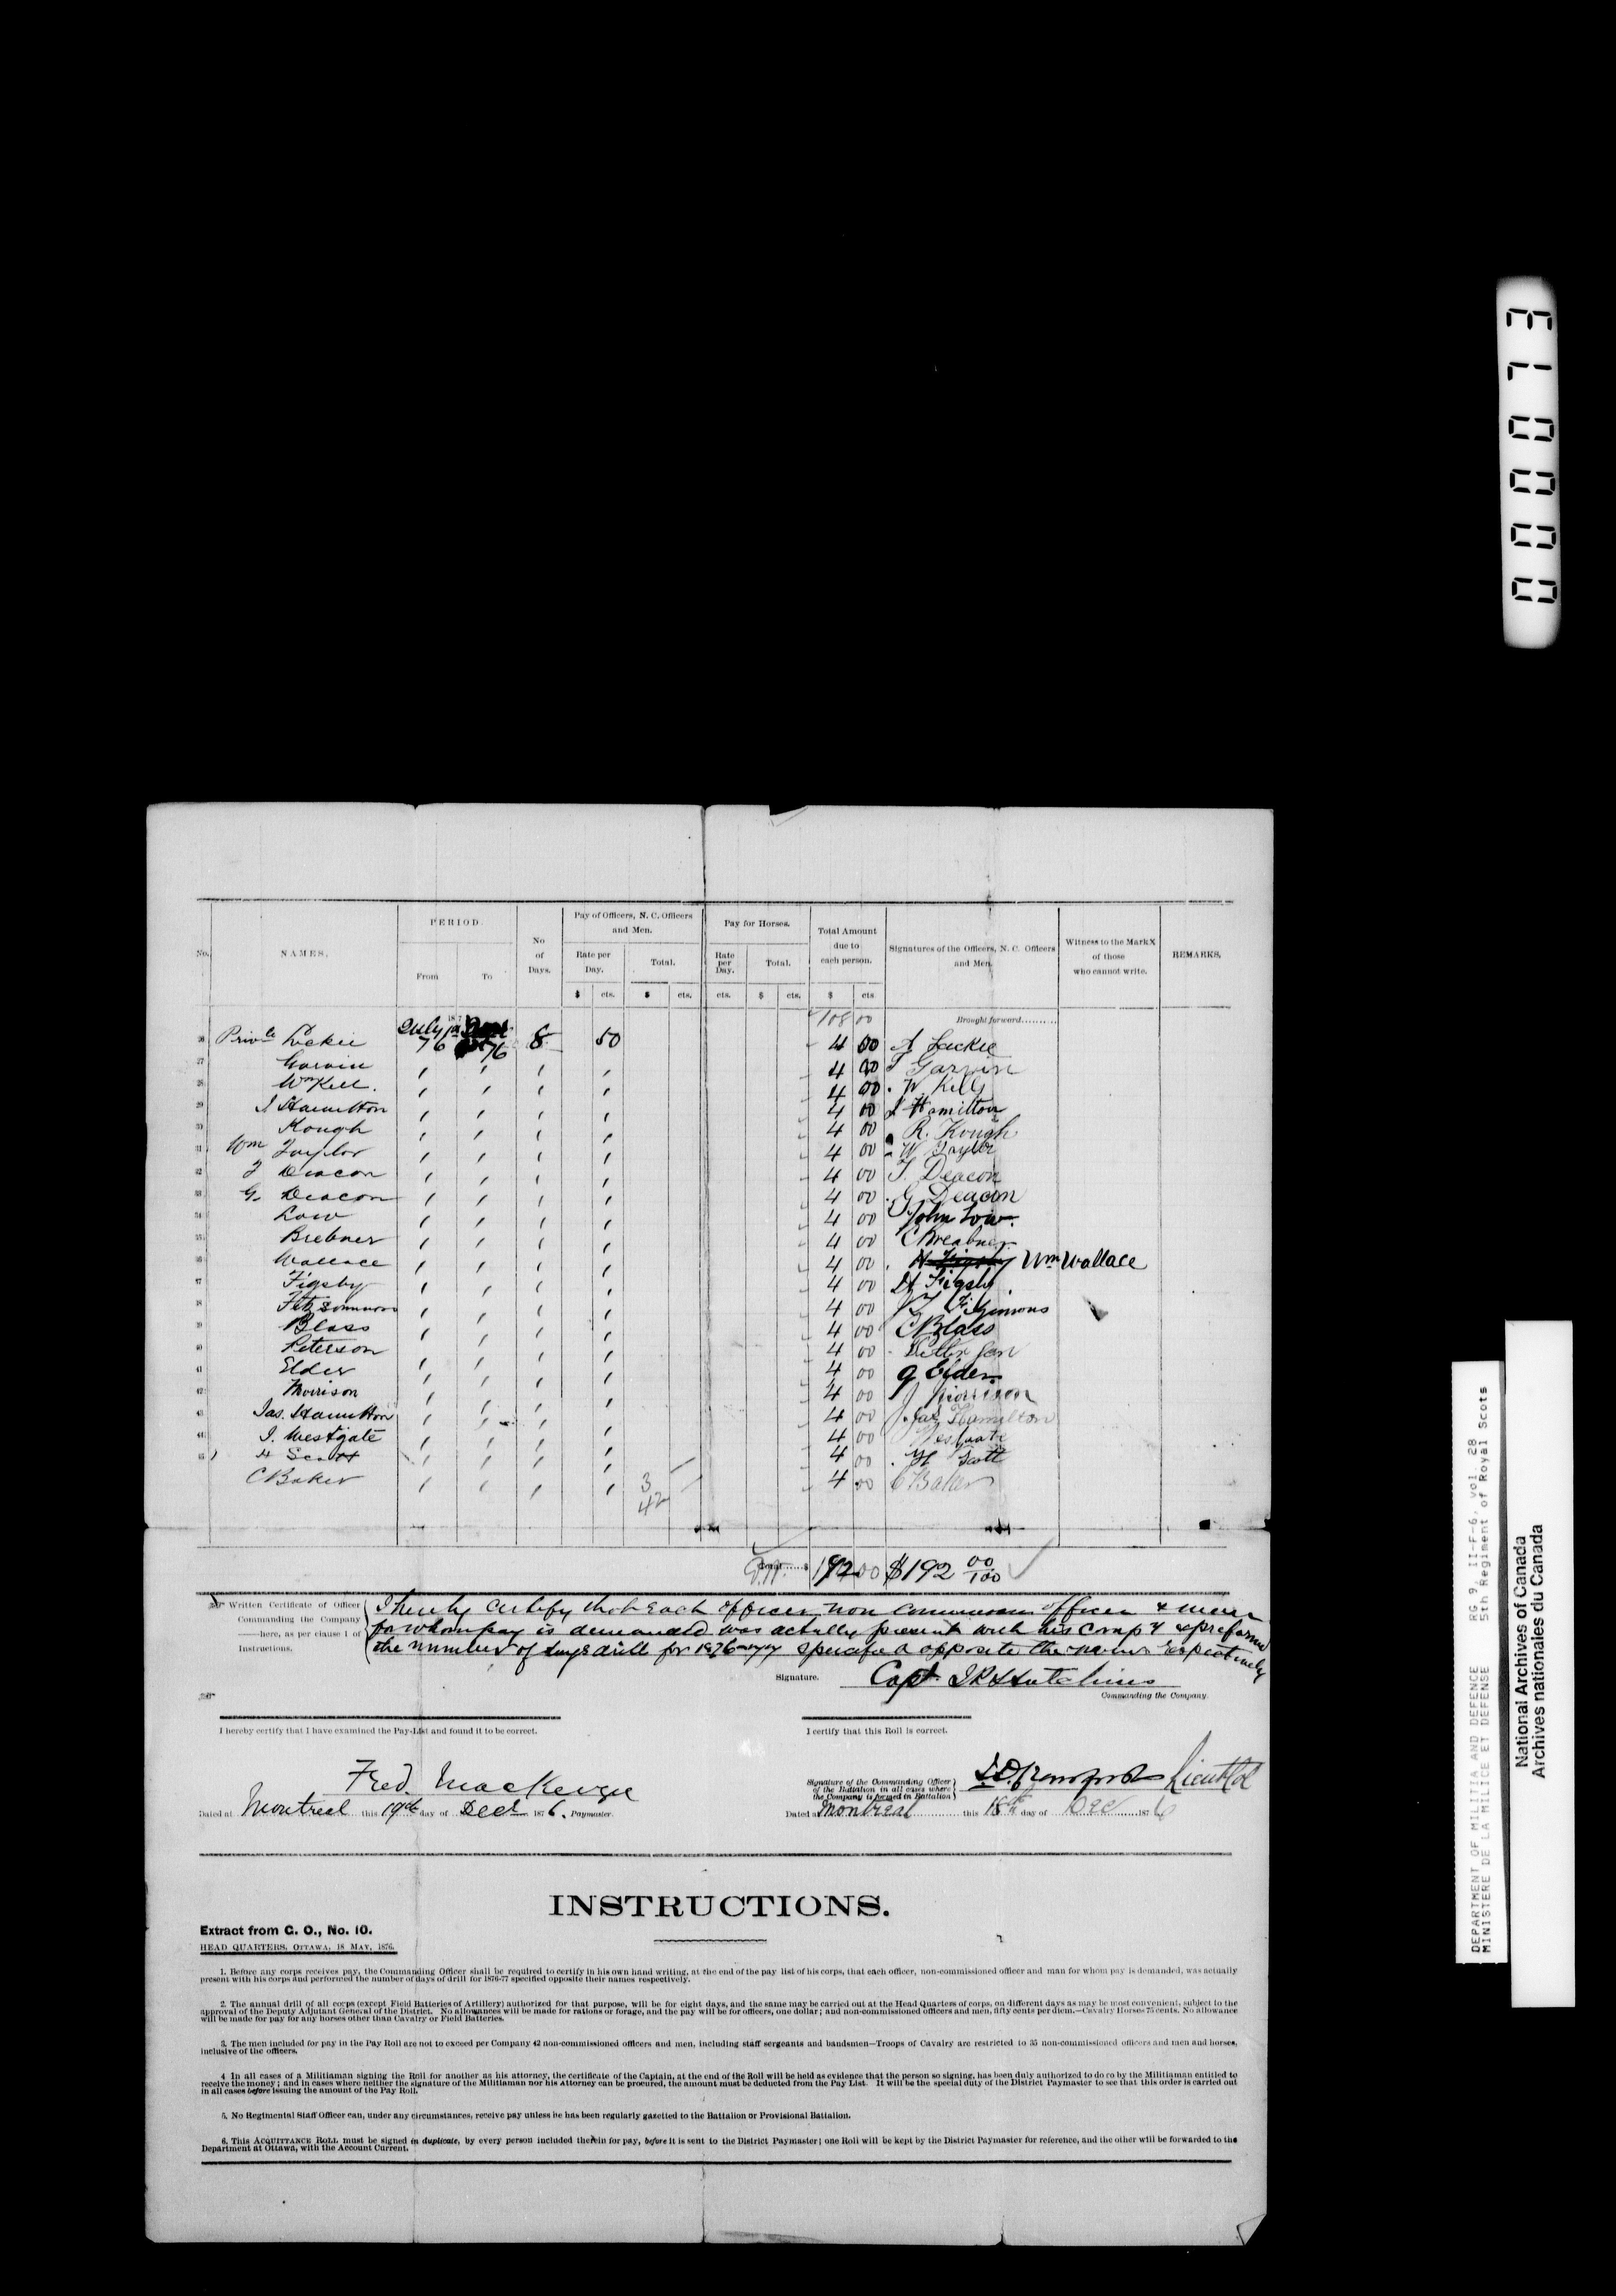 No. NAMES. PERIOD. No of Days. Pay of Officers, N. C. Officers and Men. Pay for Horses. Total Amount due to each person. Signatures of the Officers, N. C. Officers and Men. Witness to the Mark X of those who cannot write. REMARKS.
From To Rate per Day. Total. Rate per Day. Total.
$ cts. $ cts. cts. $ cts. $ cts
108 00 Brought forward..........
26 Privte Lackie July 76 76 8 50 4 00 A Lackie
27 Garvin 4 00 Garvin
28 Wm Kell. 4 00 W Kelly
29 J Hamilton 4 00 J Hamilton
30 Kough 4 00 R. Kough
31 Wm Taylor 4 00 W Taylor
32 J Deacon 4 00 J. Deacon
33 G. Deacon 4 00 G Deacon
34 Low 4 00 John Low.
35 Brebner 4 00 C Breabner
36 Wallace 4 00 Wm Wallace
37 Figsby 4 00 H Figsby
38 Fitzsimmons 4 00
39 Blass 4 00 C Blass
40 Peterson 4 00
41 Elder 4 00 G Elder
42 Morrison 4 00 J Morrison
43 Jas. Hamilton 4 00 Jas Hamilton
44 J. Westgate 4 00 Westgate
45 H Scott 4 00 H Scott
C Baker 3 4 00 C Baker
42
Total......$ 192 00 $192 00/100
Written Certificate of Officer Commanding the Company ——here, as per clause 1 of Instructions.
I hereby certify that each officer, non commission officer & men
for whom pay is demanded was actully present with his Compy & preformed
the number of days drill for 1876 specified opposite the names respectively
Signature. Capt J R Hutchins
Commanding the Company.
I hereby certify that I have examined the Pay-List and found it to be correct.
I certify that this Roll is correct.
Fred. MacKenzie
Signature of the Commanding Officer of the Battalion in all cases where the Company is formed in Battalion
Lieut Col
Dated at Montreal this 19th day of Decr 1876. Paymaster.
Dated at Montreal this 18th day of Dec 1876
INSTRUCTIONS.
Extract from G. O., No. 10.
HEAD QUARTERS, OTTAWA, 18 MAY, 1876.
1. Before any corps receives pay, the Commanding Officer shall be required to certify in his own hand writing, at the end of the pay list of his corps, that each officer, non-commissioned officer and man for whom pay is demanded, was actually
present with his corps and performed the number of days of drill for 1876-77 specified opposite their names respectively.
2. The annual drill of all corps (except Field Batteries of Artillery) authorized for that purpose, will be for eight days, and the same may be carried out at the Head Quarters of corps, on different days as may be most convenient, subject to the
approval of the Deputy Adjutant General of the District. No allowances will be made for rations or forage, and the pay will be for officers, one dollar; and non-commissioned officers and men, fifty cents per diem.—Cavalry Horses 75 cents. No allowance
will be made for pay for any horses other than Cavalry or Field Batteries.
3. The men included for pay in the Pay Roll are not to exceed per Company 42 non-commissioned officers and men, including staff sergeants and bandsmen—Troops of Cavalry are restricted to 35 non-commissioned officers and men and horses,
inclusive of the officers.
4 In all cases of a Militiaman signing the Roll for another as his attorney, the certificate of the Captain, at the end of the Roll will be held as evidence that the person so signing, has been duly authorized to do co by the Militiaman entitled to
receive the money; and in cases where neither the signature of the Militiaman nor his Attorney can be procured, the amount must be deducted from the Pay List. It will be the special duty of the District Paymaster to see that this order is carried out
in all cases before issuing the amount of the Pay Roll.
5. No Regimental Staff Officer can, under any circumstances, receive pay unless he has been regularly gazetted to the Battalion or Provisional Battalion.
6. This ACQUITTANCE ROLL must be signed in duplicate, by every person included therein for pay, before it is sent to the District Paymaster; one Roll will be kept by the District Paymaster for reference, and the other will be forwarded to the
Department at Ottawa, with the Account Current.
000073
DEPARTMENT OF MILITIA AND DEFENCE RG 9, II-F-6, vol. 28
MINISTERE DE LA MILICE ET DEFENSE 5th Regiment of Royal Scots
National Archives of Canada
Archives nationales du Canada